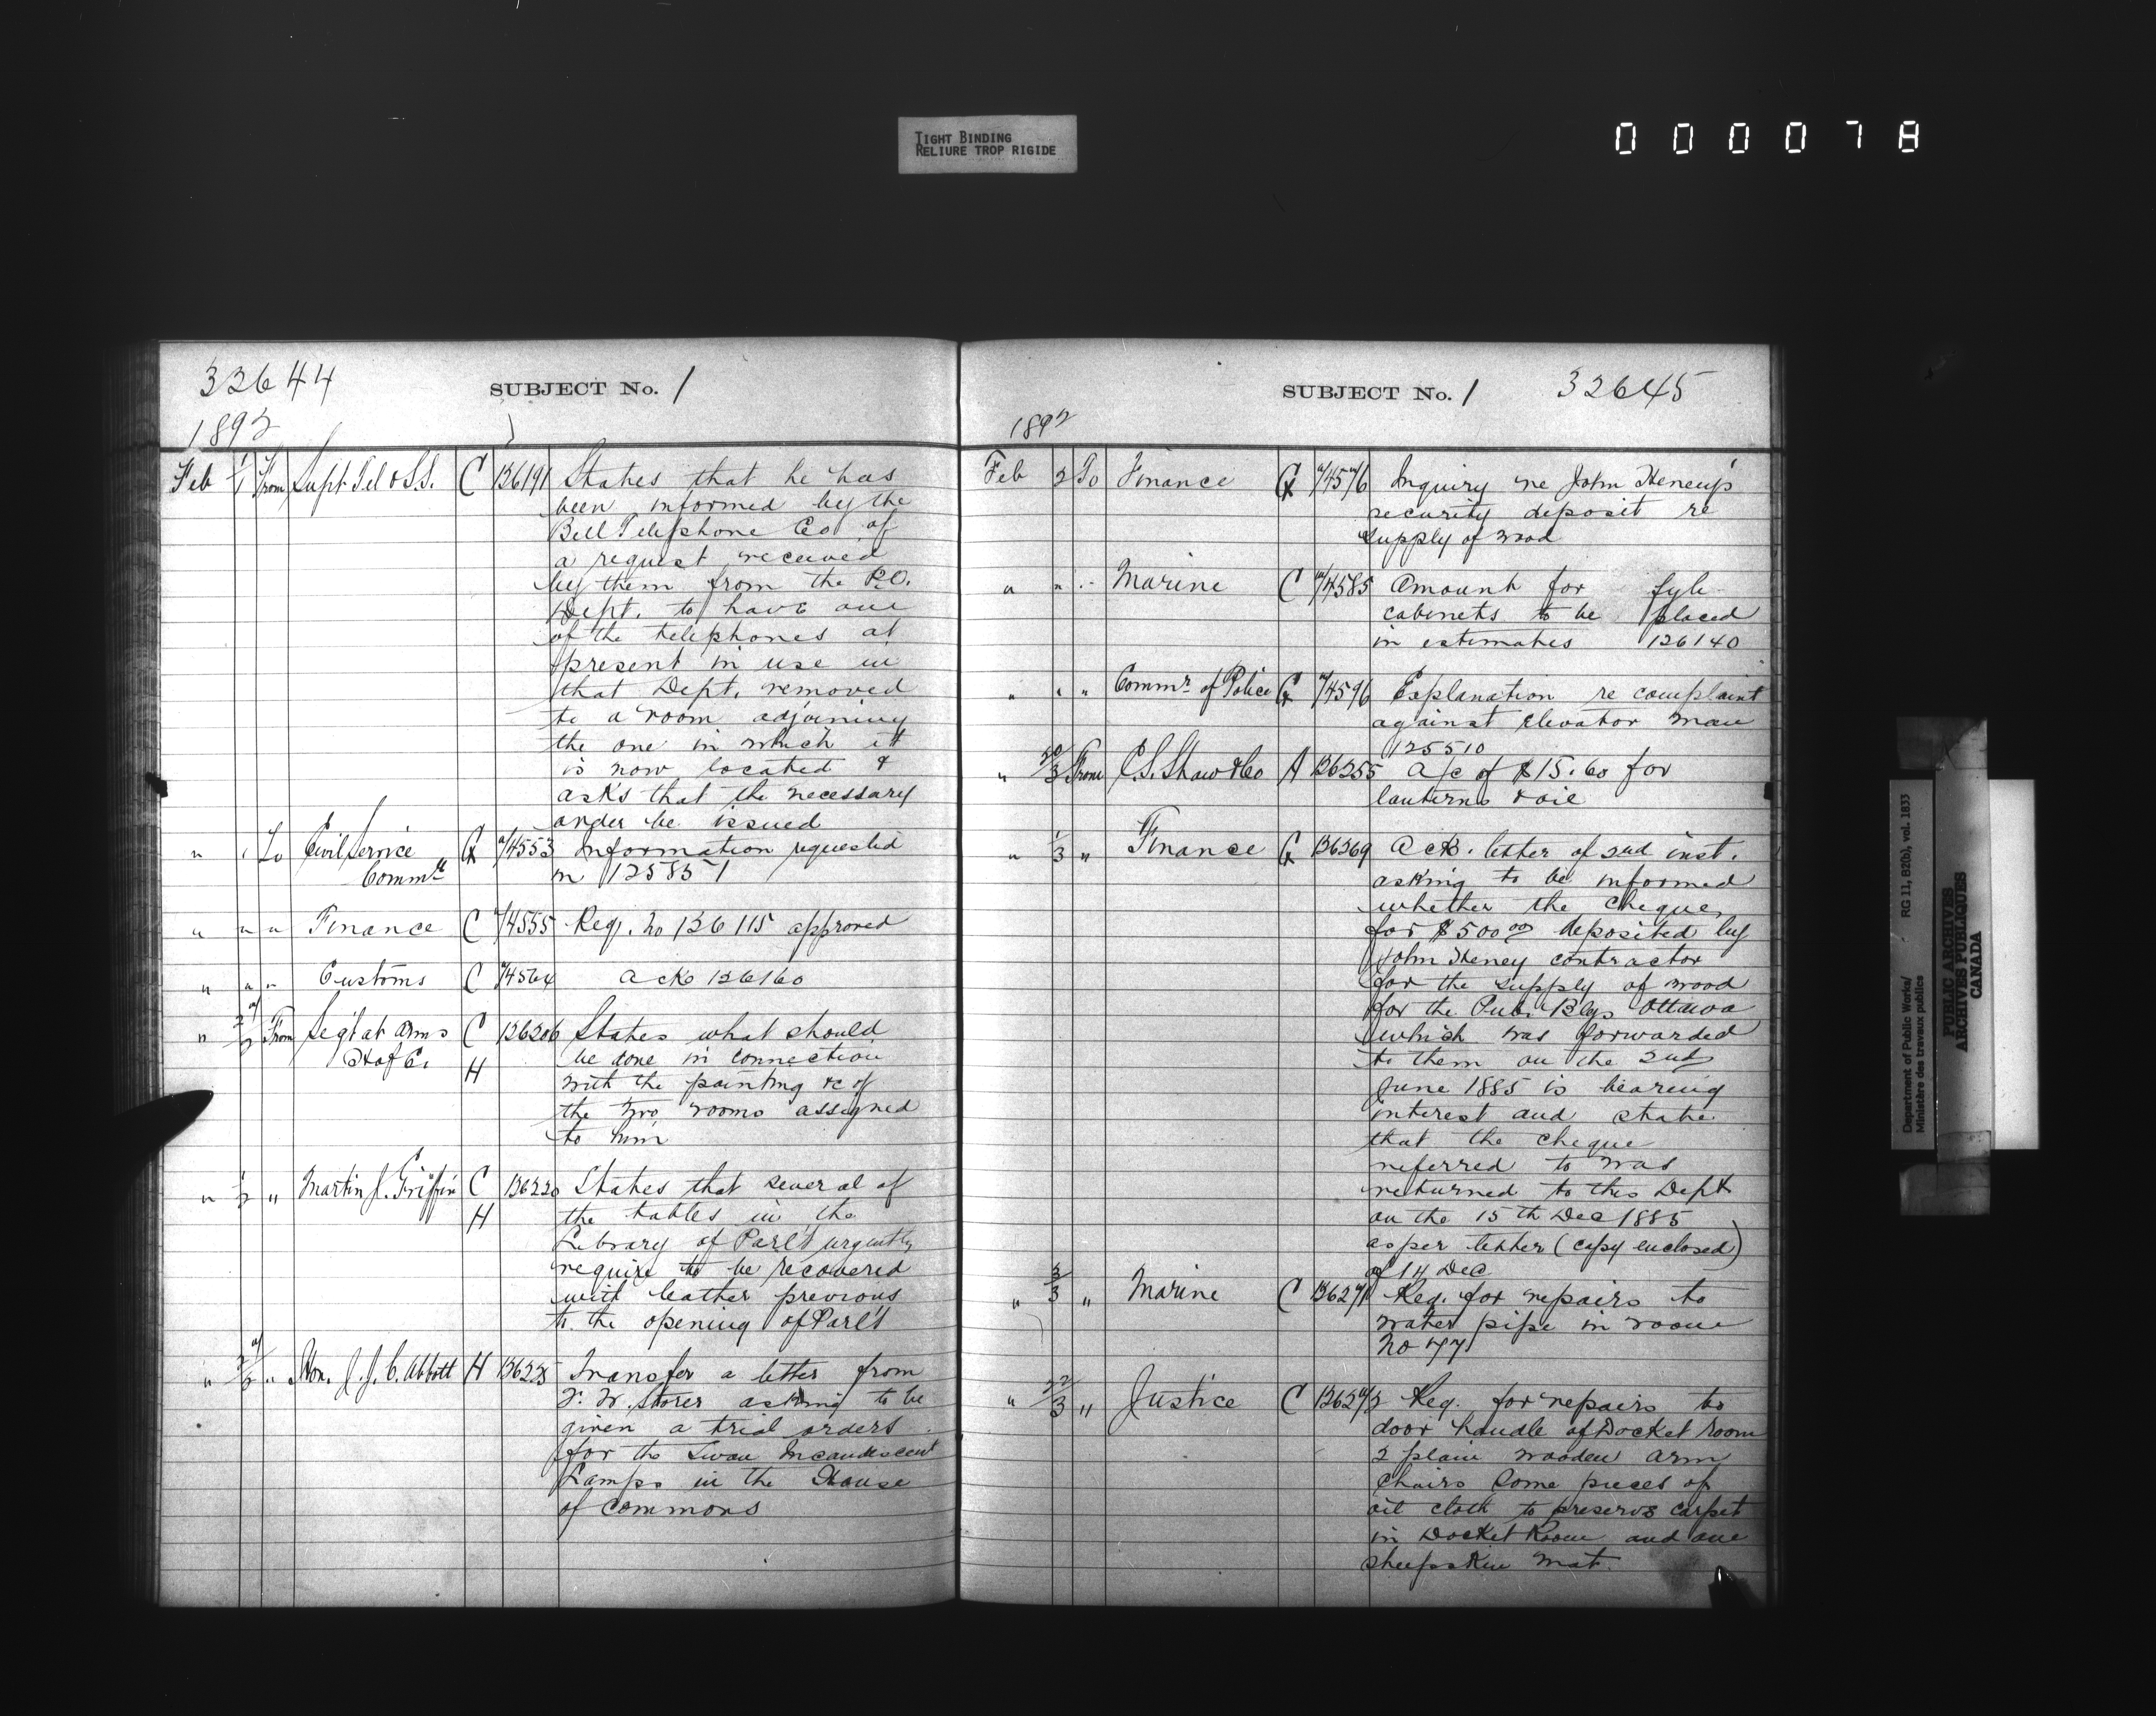 TIGHT BINDING
RELIURE TROP RIGIDE
000078
32644
SUBJECT No. 1
1892
Feb 1/1 From Supt Tel & S.S. C 136191 States that he has
been informed by the
Bell Telephone Co of
a request received
by them from the P.O.
Dept. to have one
of the telephones at
present in use in
that Dept. removed
to a room adjoining
the one in which it
is now located &
asks that the necessary
order be issued
" " To Civil Service G 74553 Information requested
Commrs in 125851
" " " Finance C 74555 Req. No 136115 approved
" " " Customs C 74564 Ack 126160
" From Sergt at Arms C 136206 States what should
H of C. be done in connection
H with the painting &c of
the two rooms assigned
to him
" 1/2 " Martin J. Griffin C 136220 States that several of
H the tables in the
Library of Parl't urgently
require to be recovered
with leather previous
to the opening of Parl't
" " Hon. J. J. C. Abbott H 136225 Transfer a letter from
F. W. Storer asking to be
given a trial orders
for the Swan Incandescent
Lamps in the House
of Commons
SUBJECT No. 1 32645
1892
Feb 2 To Finance G 74576 Inquiry re John Heney's
security deposit re
supply of wood
" " " Marine C 74585 Amount for fyle
cabinets to be placed
in estimates 126140
" " " Commr of Police G 74596 Explanation re complaint
against elevator man
125510
" 30/3 From C.S. Shaw & Co A 136255 A/c of $15.60 for
lanterns & oil
" 1/3 " Finance G 136269 Ack. letter of 2nd inst.
asking to be informed
whether the cheque
for $500 00 deposited by
John Heney contractor
for the supply of wood
for the Pub. Blgs Ottawa
which was forwarded
to them on the 2nd
June 1885 is bearing
interest and state
that the cheque
referred to was
returned to this Dept
on the 15th Dec 1885
as per letter (copy enclosed)
of 14 Dec
" 3/3 " Marine C 136271 Req. for repairs to
water pipe in room
No 77
" 22/3 " Justice C 136272 Req. for repairs to
door handle of Docket room
2 plain wooden arm
chairs some pieces of
oil cloth to preserve carpet
in Docket Room and one
sheepskin mat.
Department of Public Works/ RG 11, B2(b), vol. 1833
Ministère des travaux publics
PUBLIC ARCHIVES
ARCHIVES PUBLIQUES
CANADA